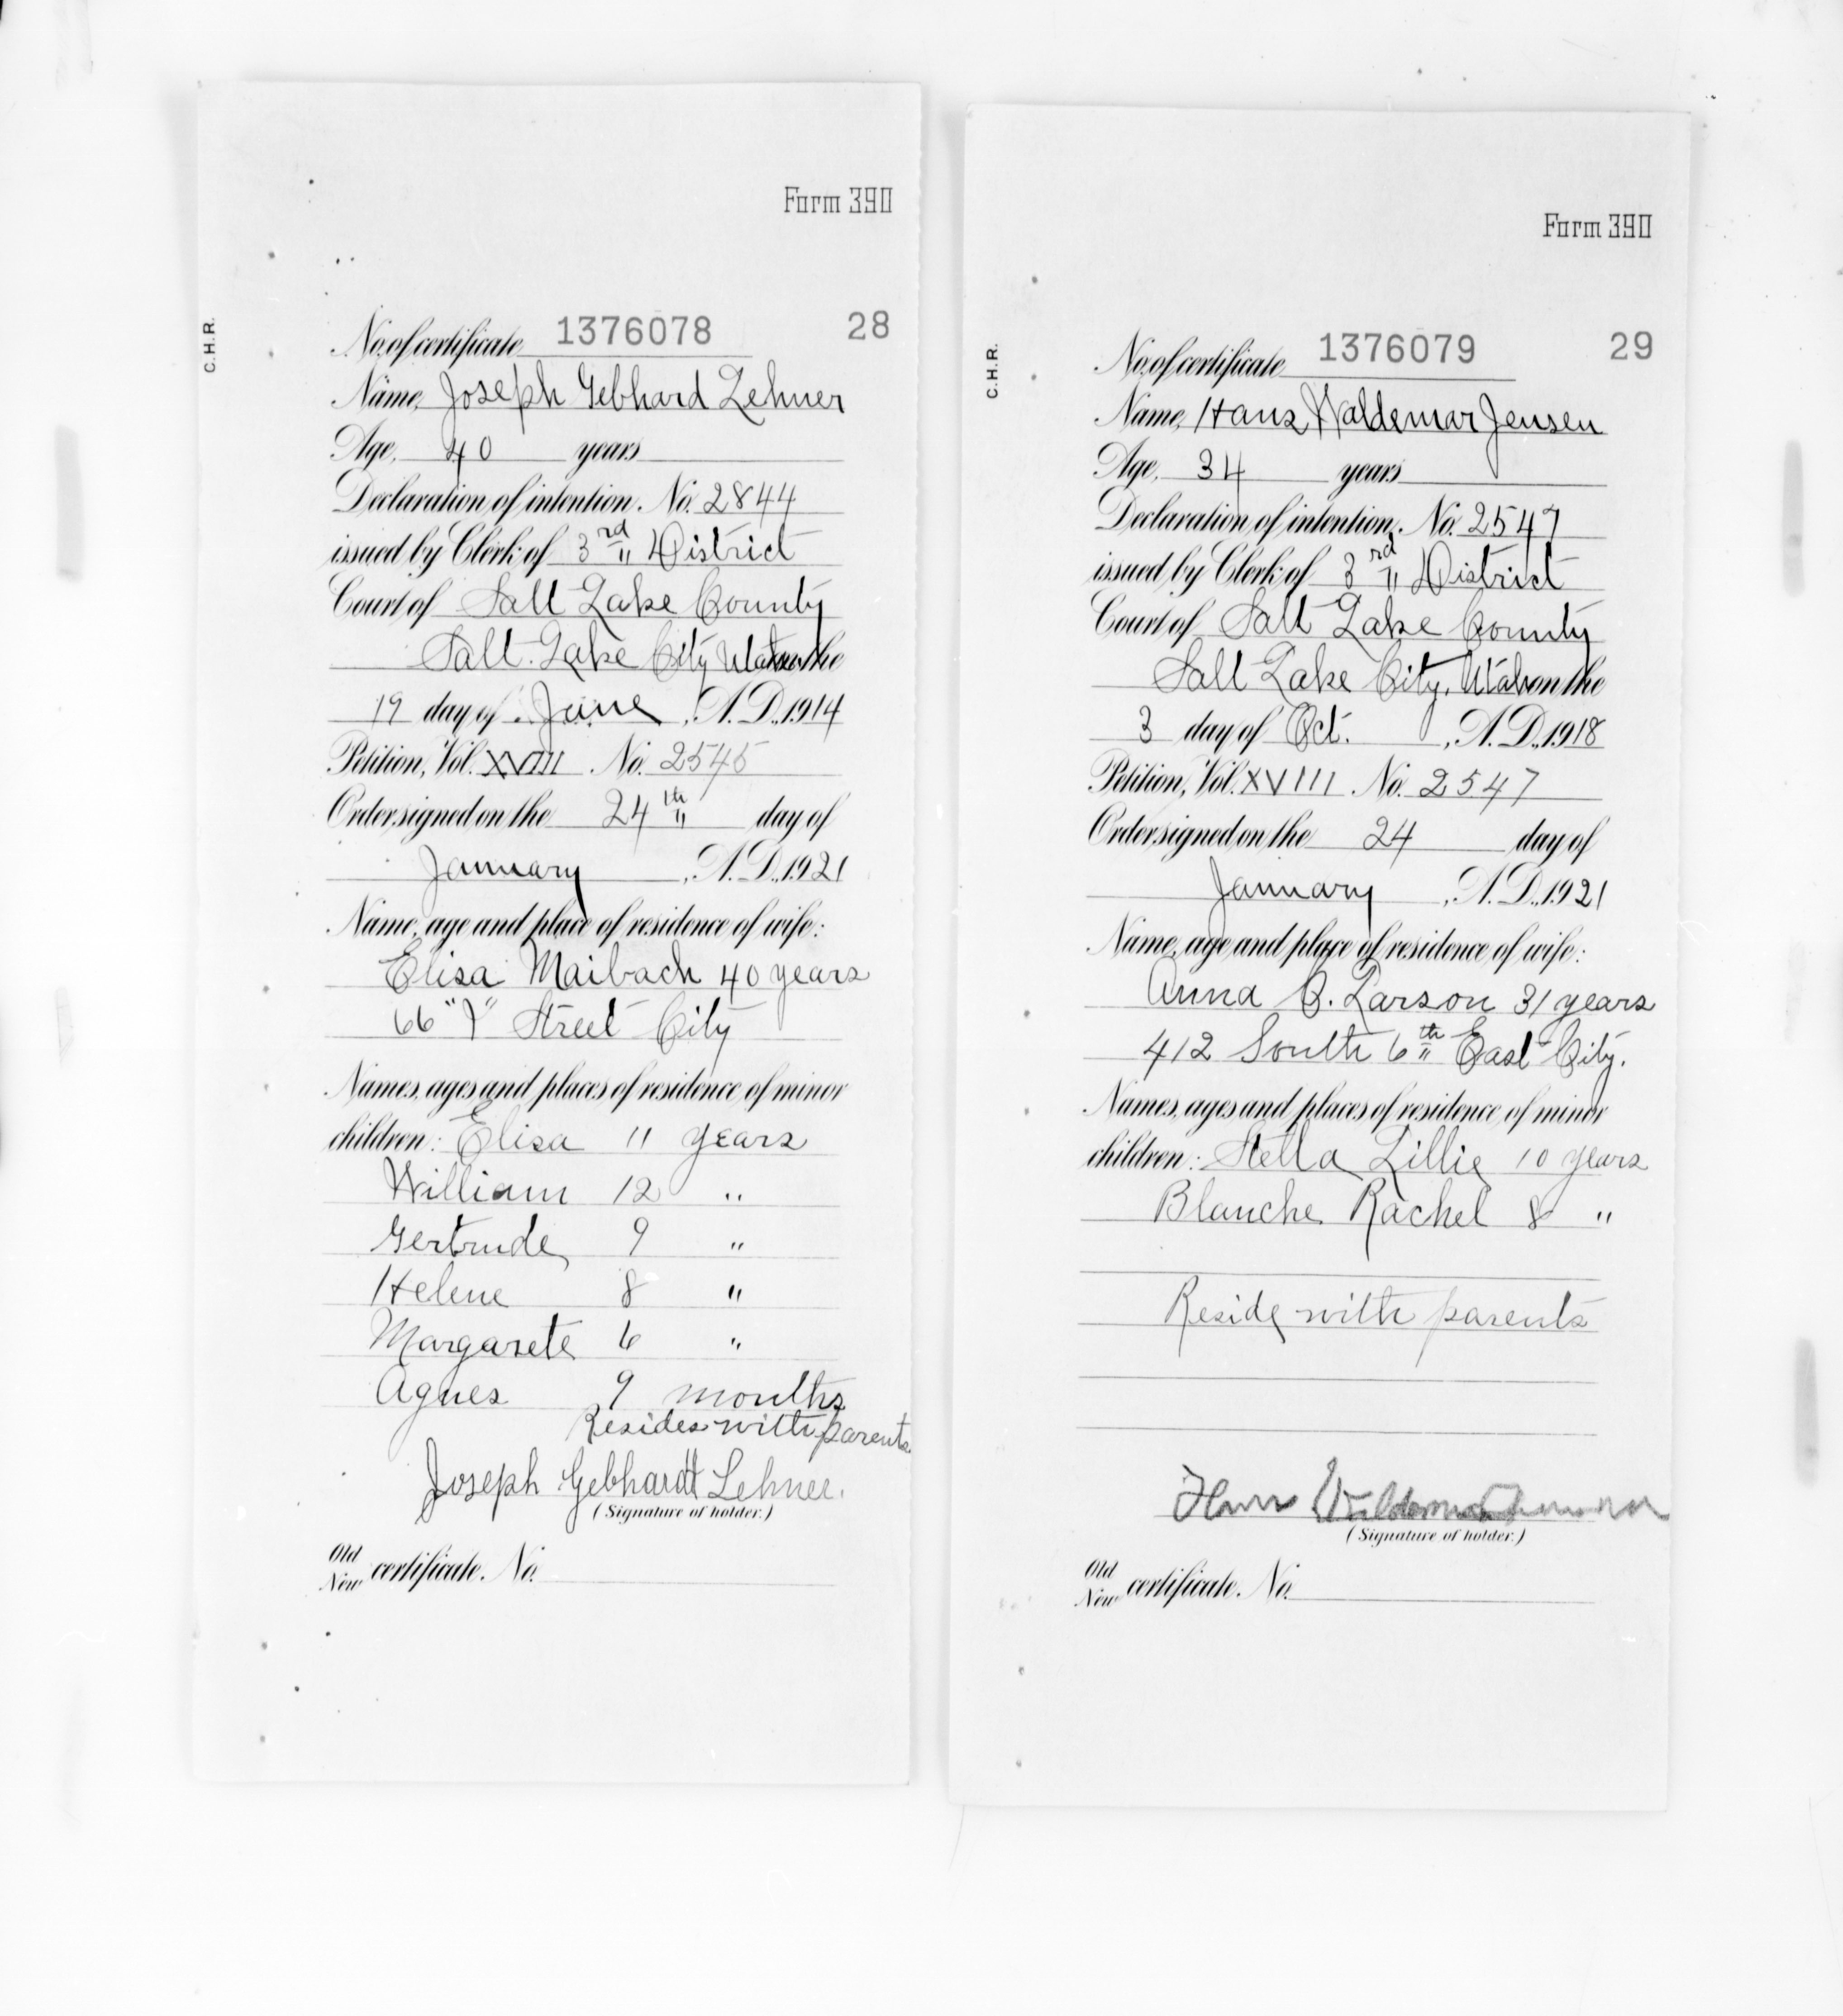 Form 390
C.H.R.
No. of certificate 1376078 28
Name, Joseph Gebhard Lehner
Age, 40 years
Declaration of intention, No. 2844
issued by Clerk of 3rd District
Court of Salt Lake County
Salt Lake City Utah on the
19 day of June, A.D., 1914
Petition, Vol. XVIII No. 2545
Order signed on the 24th day of
January, A.D., 1921
Name, age and place of residence of wife:
Elisa Maibach 40 years
66 " " Street City
Names, ages and places of residence of minor
children: Elisa 11 years
William 12 "
Gertrude 9 "
Helene 8 "
Margarete 6 "
Agnes 9 months
Resides with parents
Joseph Gebhardt Lehner.
(Signature of holder.)
Old
New certificate, No.
Form 390
C.H.R.
No. of certificate 1376079 29
Name, Hans Waldemar Jensen
Age, 34 years
Declaration of intention, No. 2547
issued by Clerk of 3rd District
Court of Salt Lake County
Salt Lake City, Utah on the
3 day of Oct., A.D., 1918
Petition, Vol. XVIII No. 2547
Order signed on the 24 day of
January, A.D., 1921
Name, age and place of residence of wife:
Anna Larson 31 years
412 South 6th East City.
Names, ages and places of residence of minor
children: Stella Lillie 10 years
Blanche Rachel 8 "
Reside with parents
Hans Waldemar Jensen
(Signature of holder.)
Old
New certificate, No.